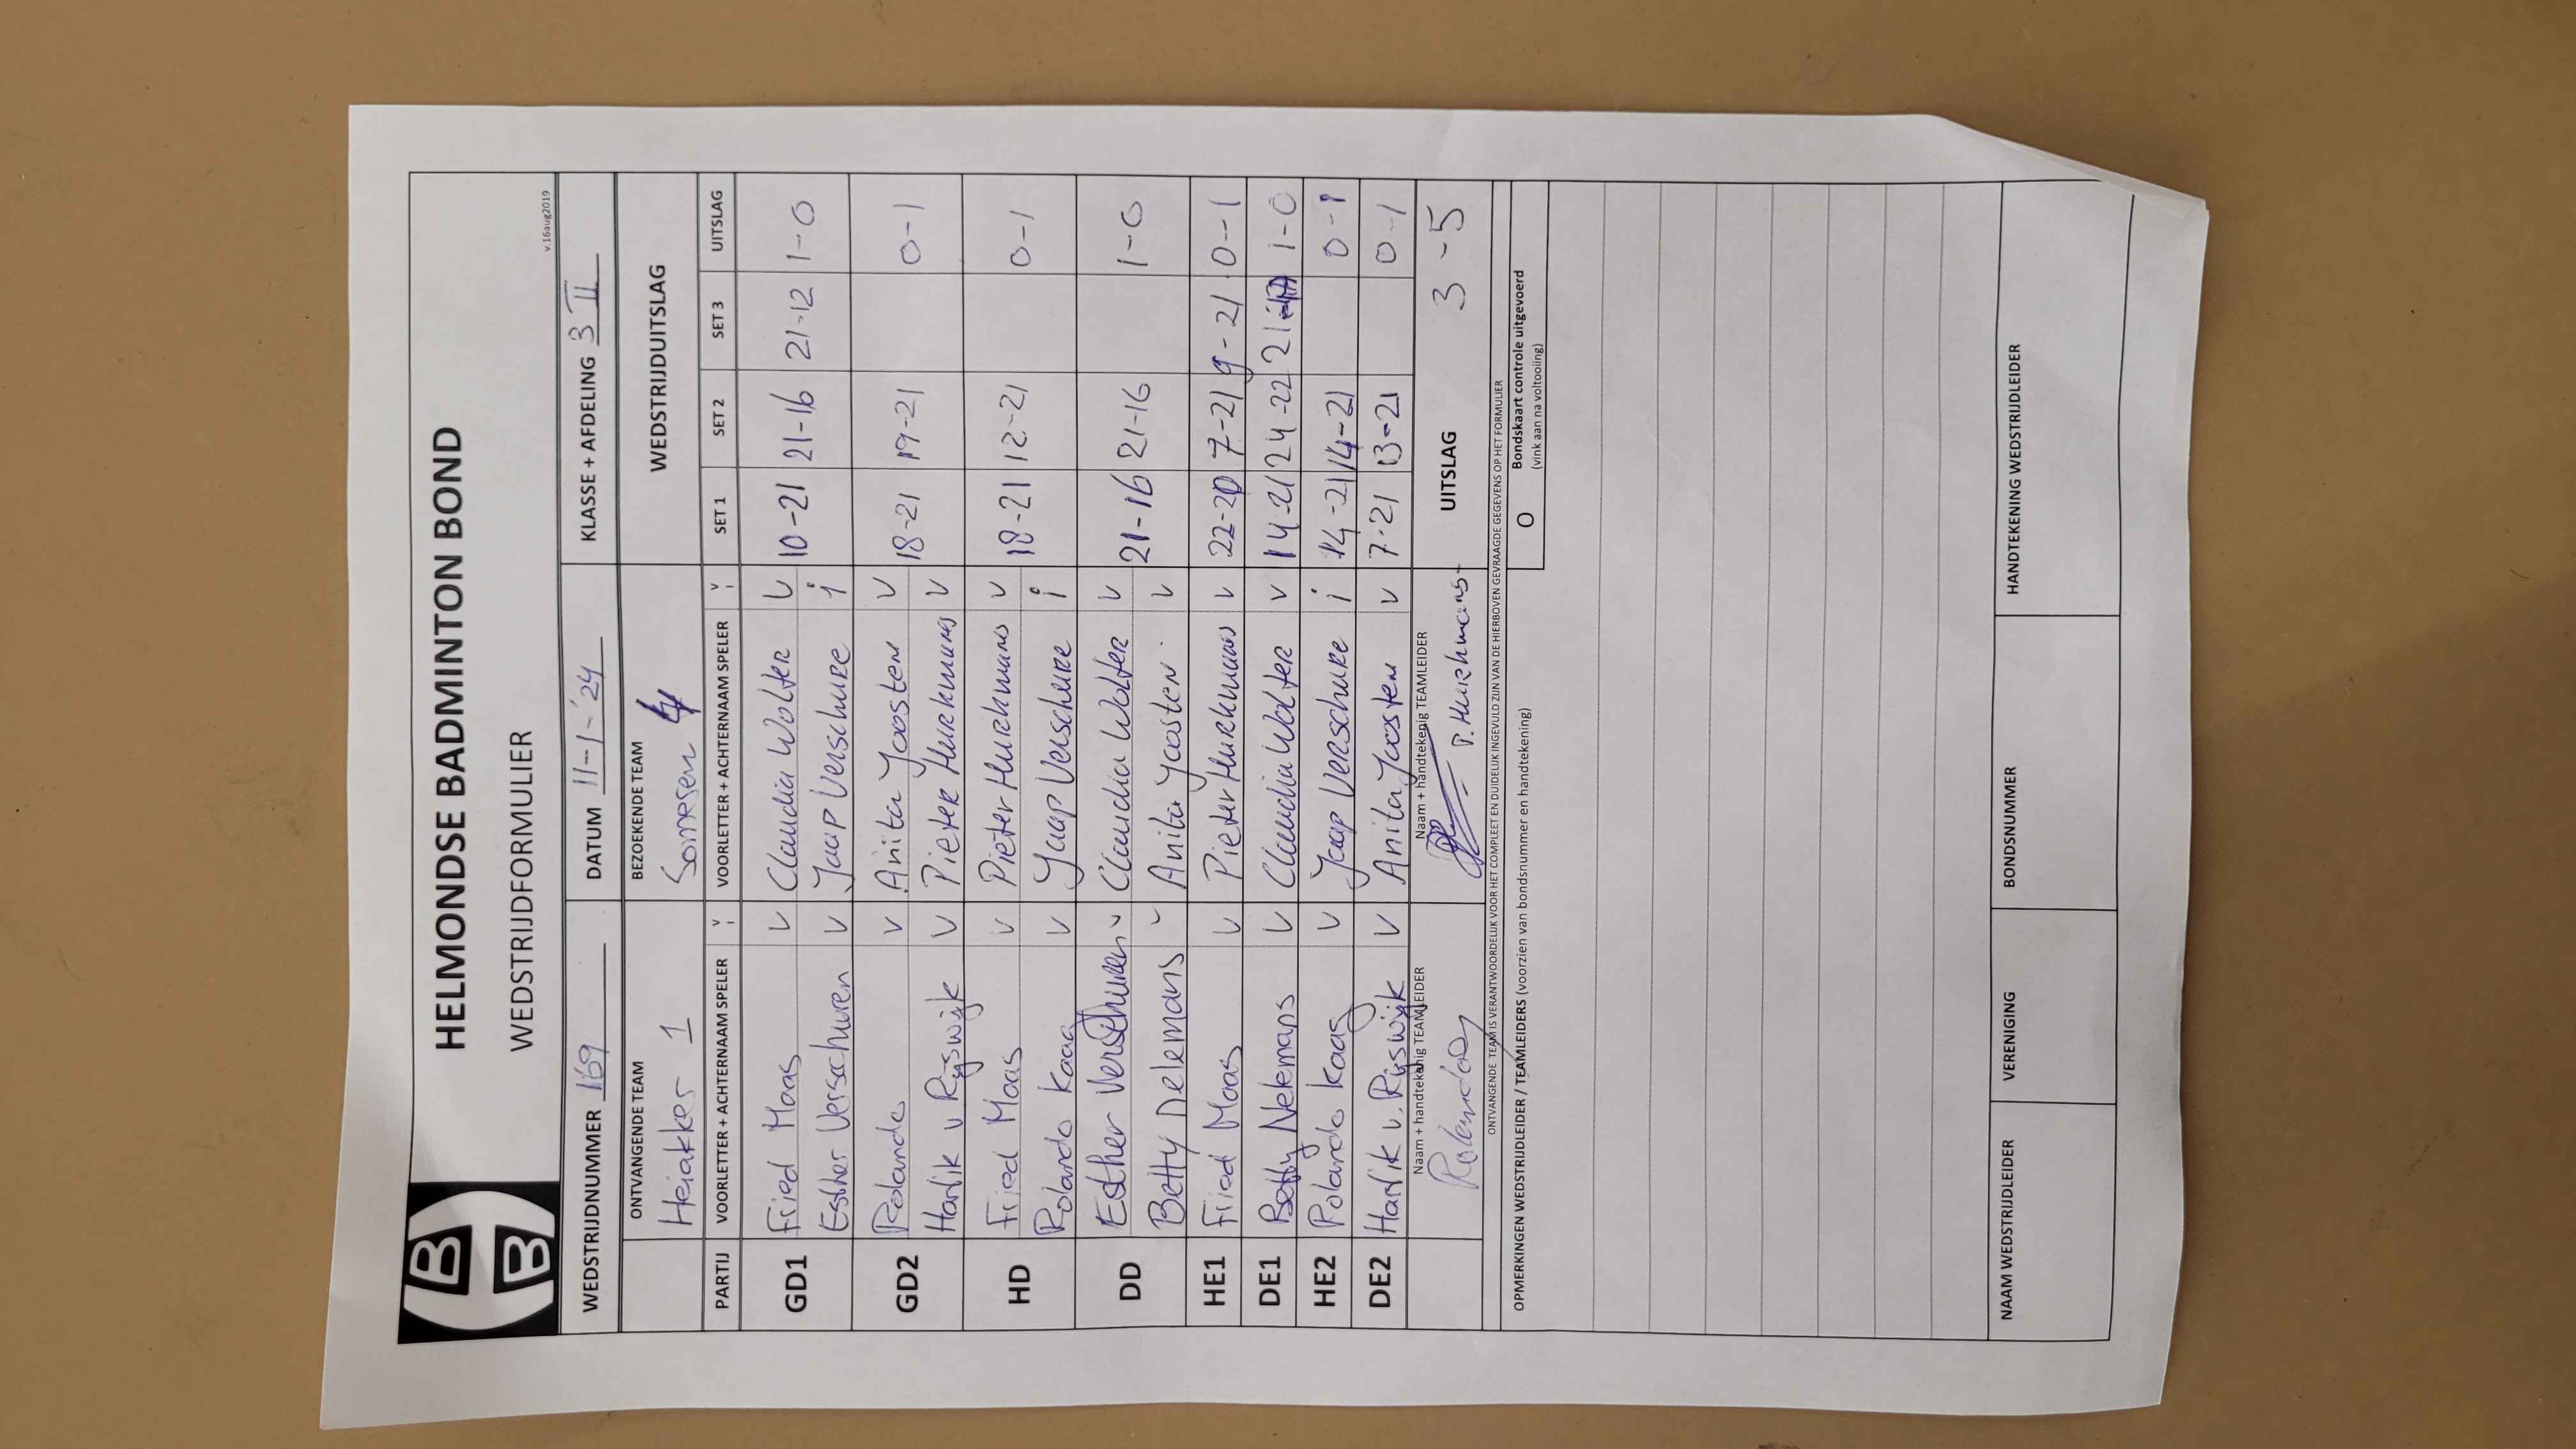 HELMONDSE BADMINTON BOND
WEDSTRIJDFORMULIER
v.16aug2019
WEDSTRIJDNUMMER 169 DATUM 11-1-'24 KLASSE + AFDELING 3 II
ONTVANGENDE TEAM BEZOEKENDE TEAM WEDSTRIJDUITSLAG
Heiakker 1 Someren 4
PARTIJ VOORLETTER + ACHTERNAAM SPELER V I VOORLETTER + ACHTERNAAM SPELER V I SET 1 SET 2 SET 3 UITSLAG
GD1 Fried Maas V Claudia Wolter V 10-21 21-16 21-12 1-0
Esther Verschuren V Jaap Verschure i
GD2 Rolando V Anita Joosten V 18-21 19-21 0-1
Harlik v Rijswijk V Pieter Hurkmans V
HD Fried Maas V Pieter Hurkmans V 18-21 12-21 0-1
Rolando Kaag V Jaap Verschure i
DD Esther Verschuren V Claudia Wolter V 21-16 21-16 1-0
Betty Nelemans V Anita Joosten V
HE1 Fried Maas V Pieter Hurkmans V 22-20 7-21 9-21 0-1
DE1 Betty Nelemans V Claudia Wolter V 14-21 24-22 21- 1-0
HE2 Rolando Kaag V Jaap Verschure i 14-21 14-21 0-1
DE2 Harlik v. Rijswijk V Anita Joosten V 7-21 13-21 0-1
Naam + handtekenig TEAMLEIDER Naam + handtekenig TEAMLEIDER UITSLAG 3-5
Rolando P. Hurkmans
ONTVANGENDE TEAM IS VERANTWOORDELIJK VOOR HET COMPLEET EN DUIDELIJK INGEVULD ZIJN VAN DE HIERBOVEN GEVRAAGDE GEGEVENS OP HET FORMULIER
OPMERKINGEN WEDSTRIJDLEIDER / TEAMLEIDERS (voorzien van bondsnummer en handtekening) O Bondskaart controle uitgevoerd
(vink aan na voltooiing)
NAAM WEDSTRIJDLEIDER VERENIGING BONDSNUMMER HANDTEKENING WEDSTRIJDLEIDER